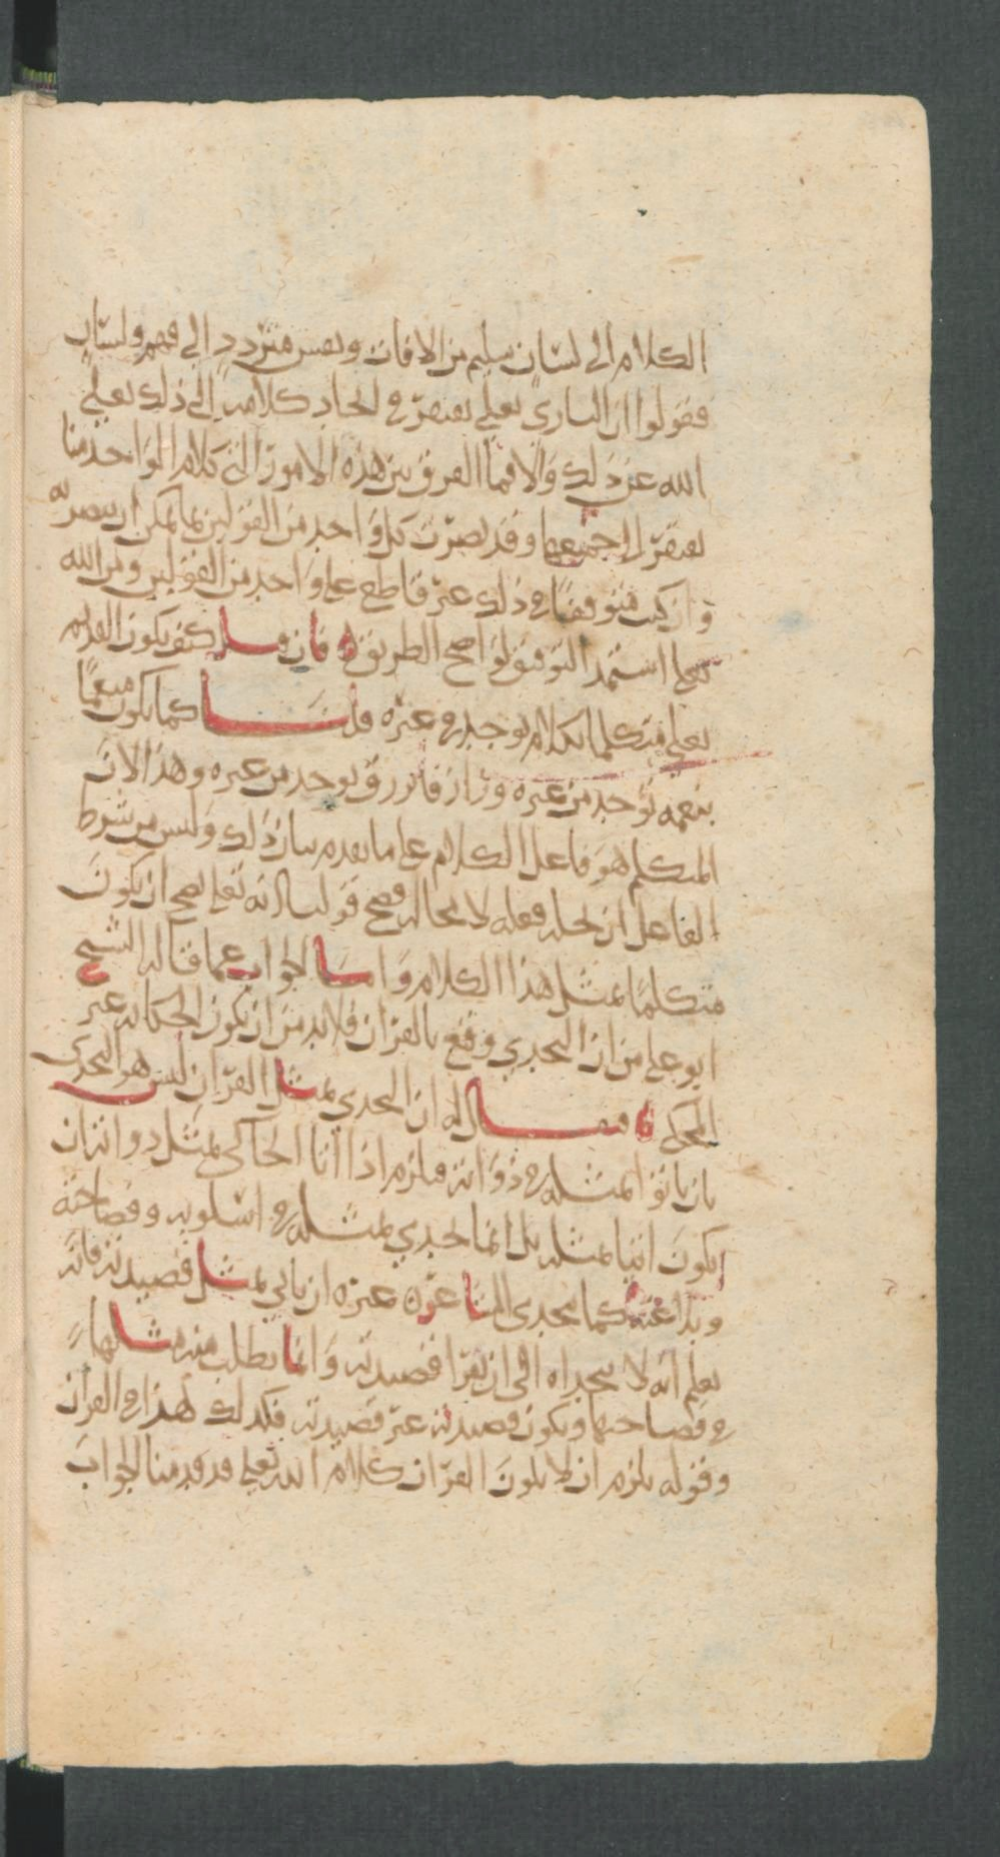 الكلام الى لسان سليم من الافات ونفس متردد الى فم ولسان
فقولوا ان الباري تعلى يفتقر في ايجاد كلامه الى ذلك تعلى
الله عن ذلك والا فما الفرق بين هذه الامور التى كلام الواحد منا
يفتقر الى جميعها وقد نصرت كل واحد من القولين بما يمكن ان ينصر به
وان كنت متوقفا في ذلك غير قاطع على واحد من القولين ومن الله
تعلى استمد التوفيق لواضح الطريق فان قيل كيف يكون القديم
تعلى متكلما بكلام يوجد في غيره قلنا كما يكون منعما
بنعمه توجد من غيره ورازقا برزق يوجد من غيره وهذا لان
المتكلم هو فاعل الكلام على ما تقدم بيان ذلك وليس من شرط
الفاعل ان يحله فعله لا محاله فصح قولنا انه تعلى يصح ان يكون
متكلما بمثل هذا الكلام واما الجواب عما قاله الشيخ
ابو علي من ان التحدي وقع بالقران فلا بد من ان يكون الحكايه غير
المحكي فيقال له ان التحدي بمثل القران ليس هو التحدى
بان ياتوا بمثله في ذواته فيلزم اذا اتا الحاكى بمثل دواته ان
يكون اتيا بمثله بل انما تحدي بمثله في اسلوبه وفصاحته
وبلاغته كما يتحدى الشاعر غيره ان ياتي بمثل قصيدته فانه
يعلم انه لا يتحداه الى ان يقرا قصيدته وانما يطلب منه مثلها
في فصاحتها ويكون قصيدته غير قصيدته فكذلك هذا في القران
وقوله يلزم ان لا يكون القران كلام الله تعلى قد قدمنا الجواب